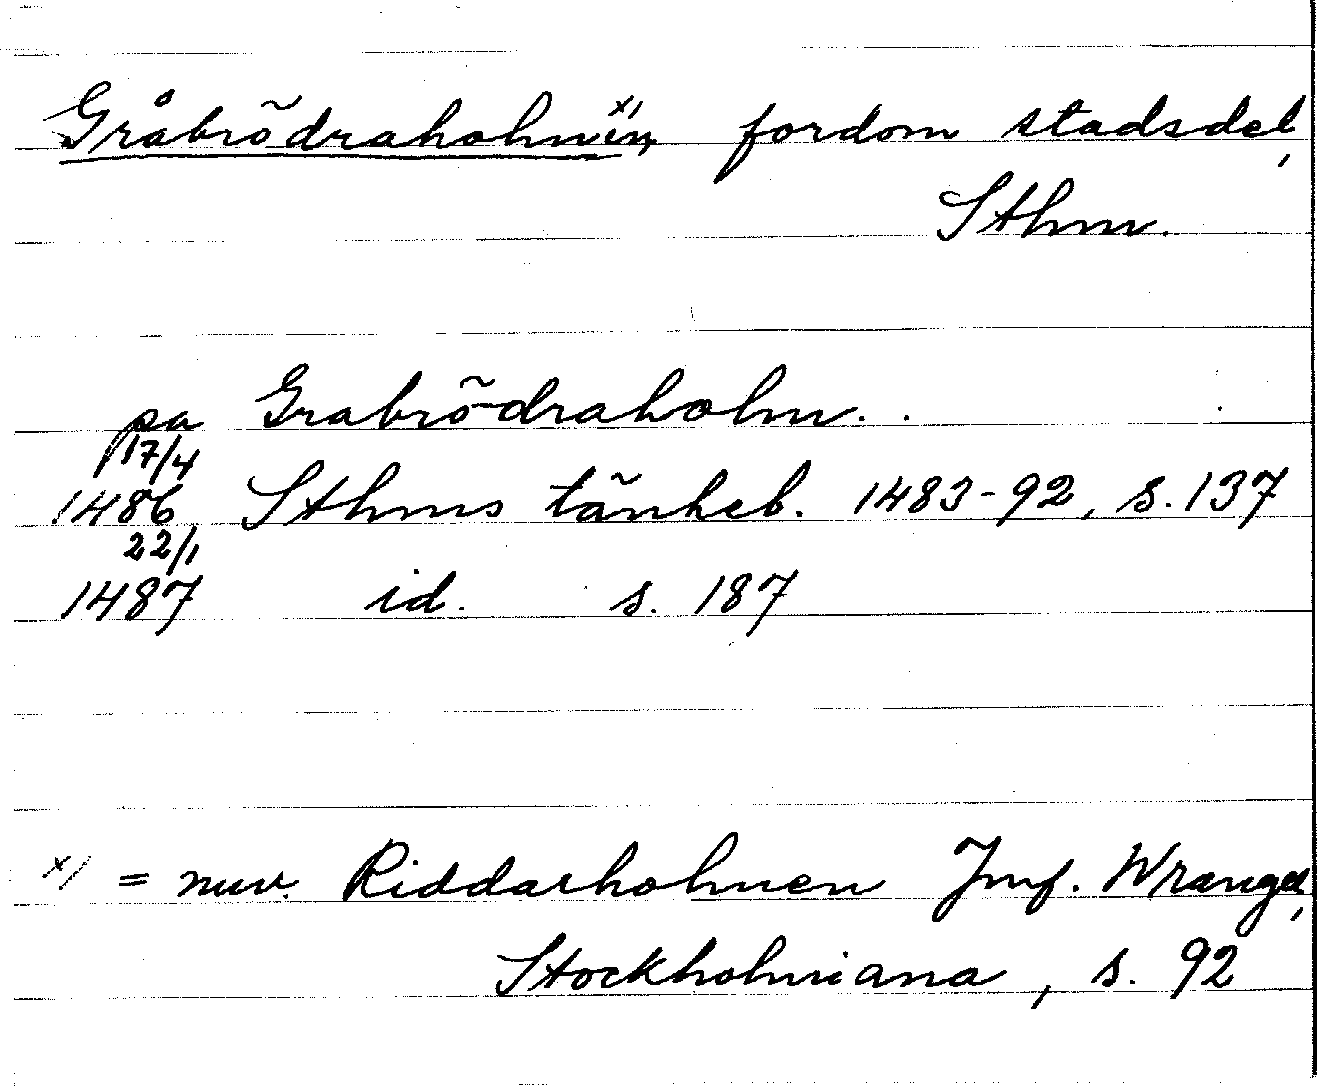 Gråbrödraholmen x/, fordom stadsdel,
Sthm.
pa Grabrödraholm..
17/4
1486, Sthms tänkeb. 1483-92, s. 137
22/1
1487 id. s. 187
x/ = nuv. Riddarholmen Jmf. Wrangel,
Stockholmiana, s. 92